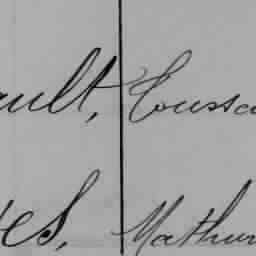 ault, Toussa
es, Mathur